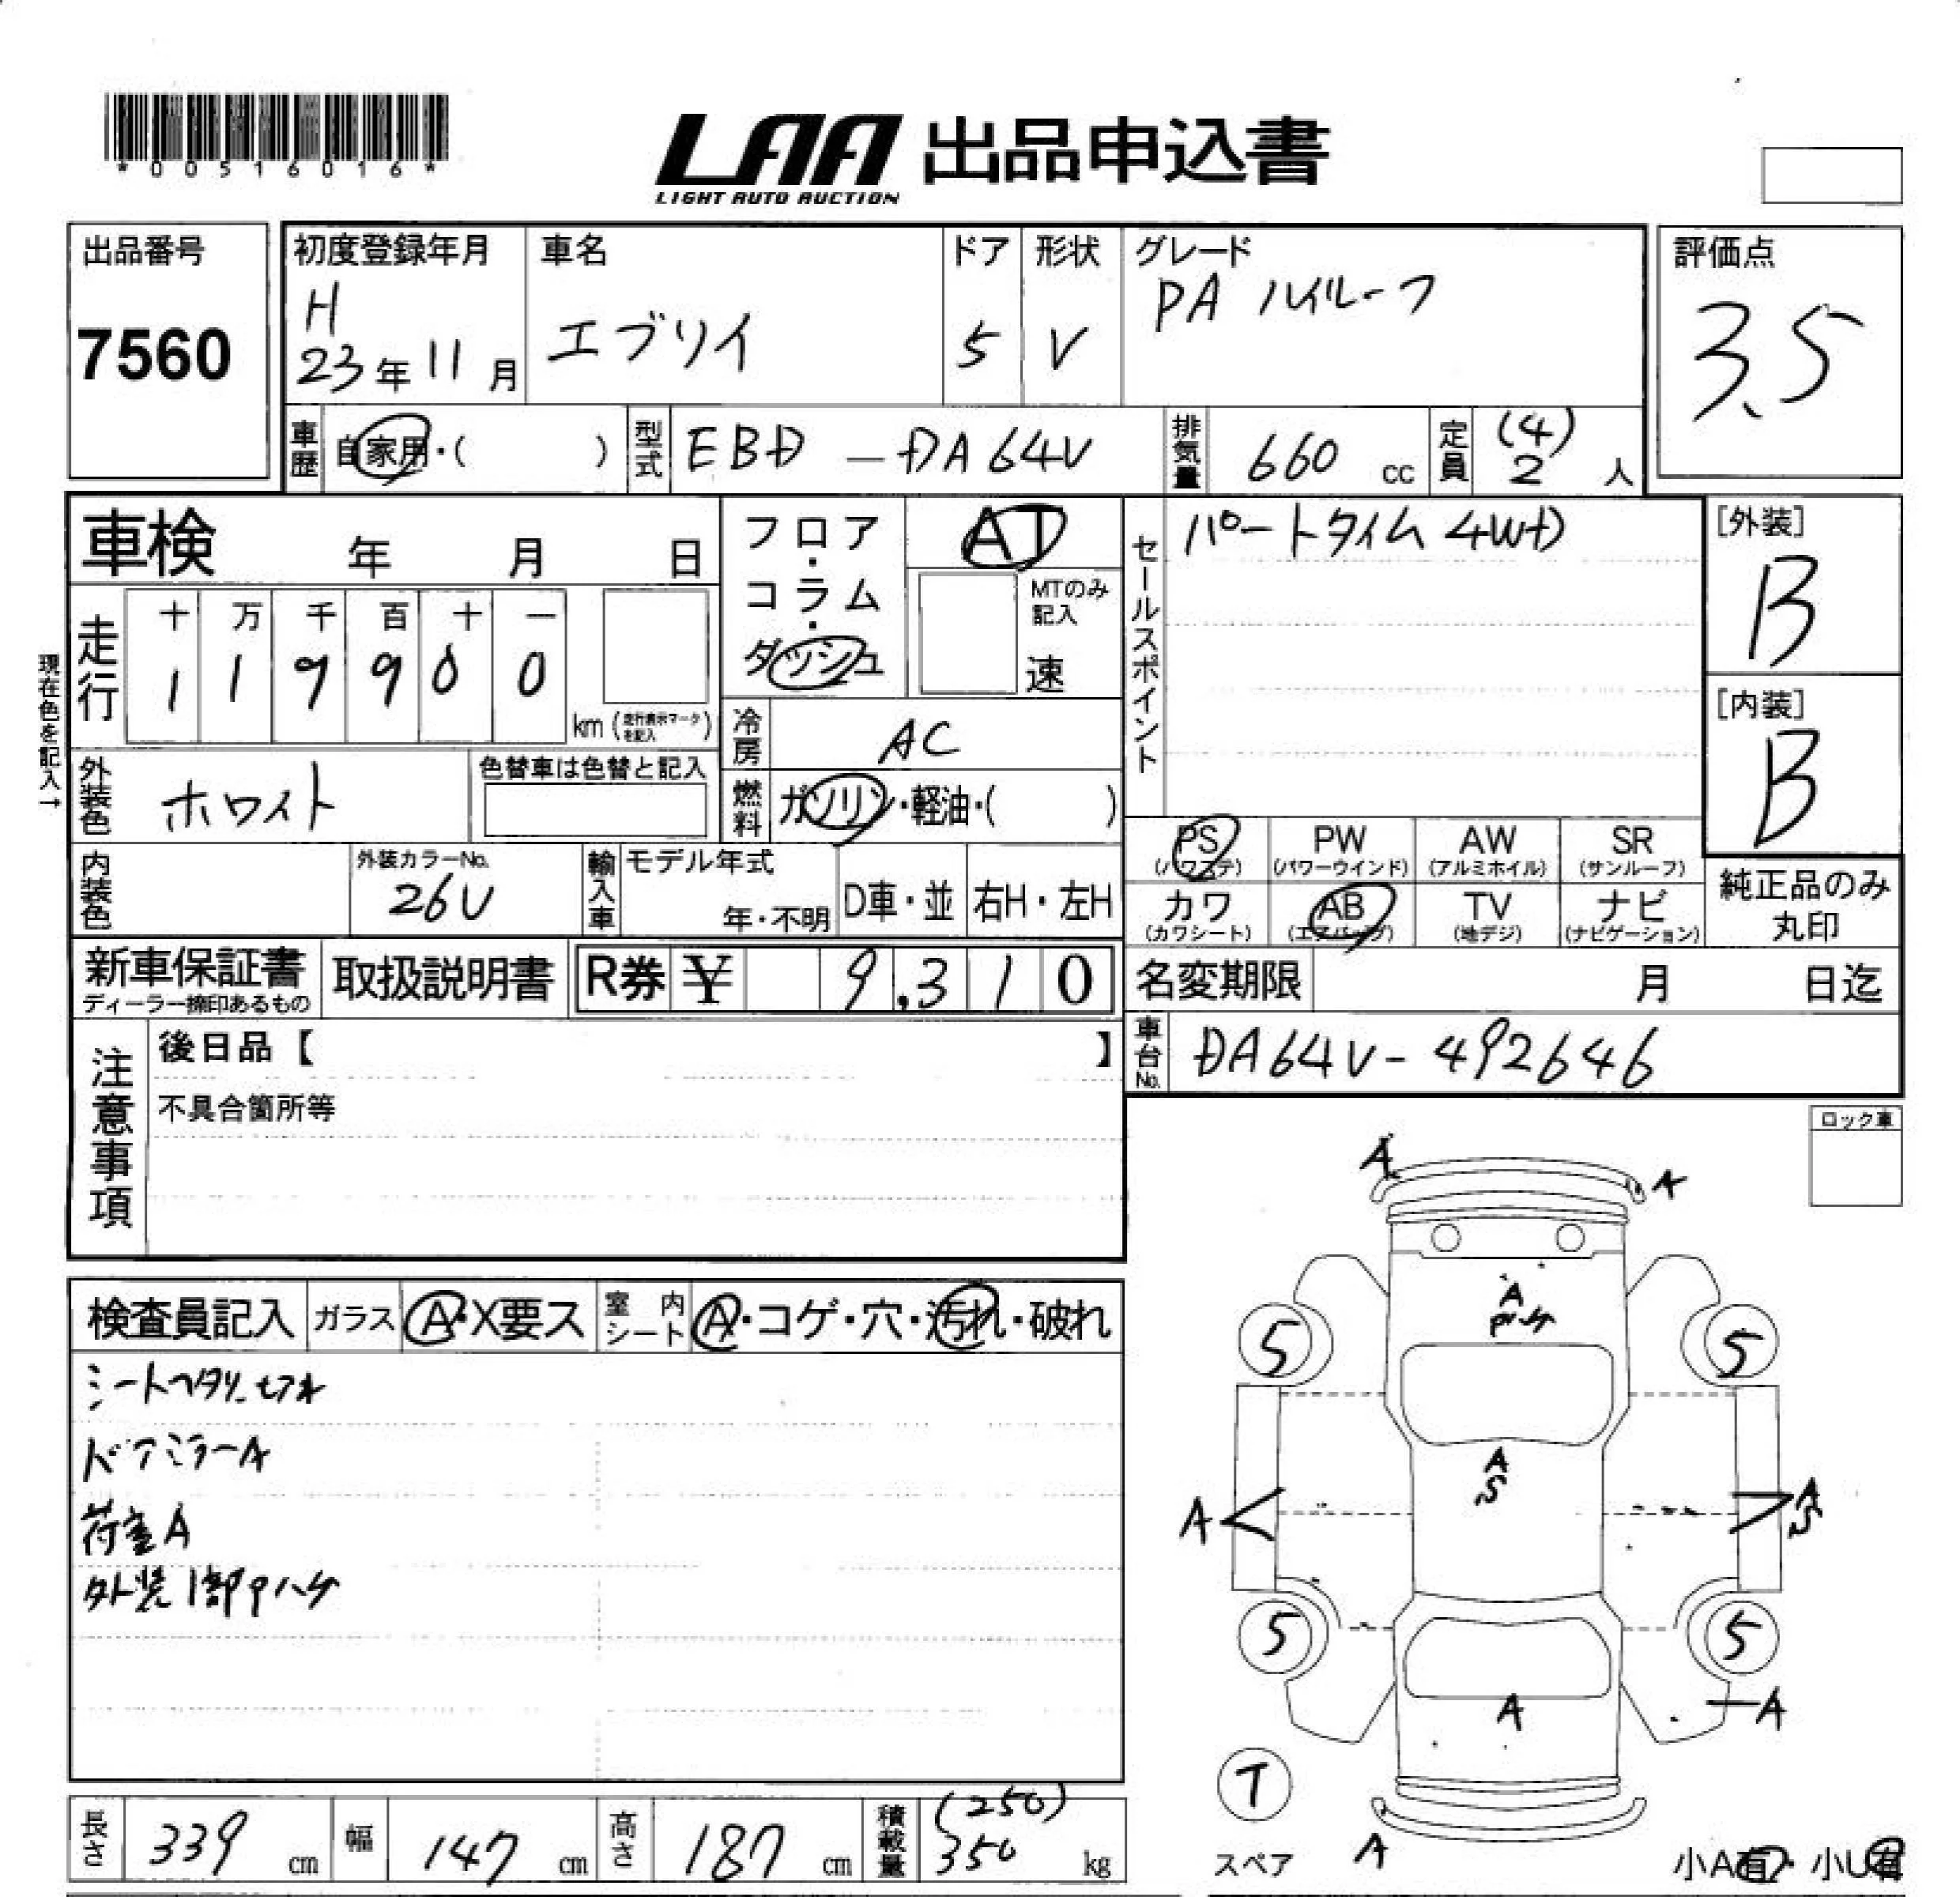 *00516016*
LAA 出品申込書
LIGHT AUTO AUCTION
出品番号
7560
初度登録年月
H
23年11月
車名
エブリイ
ドア
5
形状
V
グレード
PA ハイルーフ
評価点
3.5
車歴
自家用・( )
型式
EBD-DA64V
排気量
660 cc
定員
(4)
2 人
車検 年 月 日
フロア・コラム・ダッシュ
AT
MTのみ記入
速
セールスポイント
パートタイム 4WD
[外装]
B
[内装]
B
現在色を記入→
走行
十 万 千 百 十 一
1 1 9 9 0 0
km (走行表示マークを記入)
冷房
AC
外装色
ホワイト
色替車は色替と記入
燃料
ガソリン・軽油・( )
PS
(パワステ)
PW
(パワーウインド)
AW
(アルミホイル)
SR
(サンルーフ)
カワ
(カワシート)
AB
(エアバッグ)
TV
(地デジ)
ナビ
(ナビゲーション)
純正品のみ
丸印
内装色
外装カラーNo.
26U
輸入車
モデル年式
年・不明
D車・並
右H・左H
新車保証書
ディーラー捺印あるもの
取扱説明書
R券 ¥ 9,310
名変期限 月 日迄
車台No.
DA64V-492646
注意事項
後日品【 】
不具合箇所等
ロック車
検査員記入
ガラス
A・X要ス
室内シート
A・コゲ・穴・汚れ・破れ
シートヘタリ
ドアミラーA
荷室A
外装1部Pハゲ
A
A
A
Pハゲ
5
5
A
S
A
A
S
5
5
A
A
T
スペア
A
小A有・小U有
長さ
339 cm
幅
147 cm
高さ
187 cm
積載量
(250)
350 kg